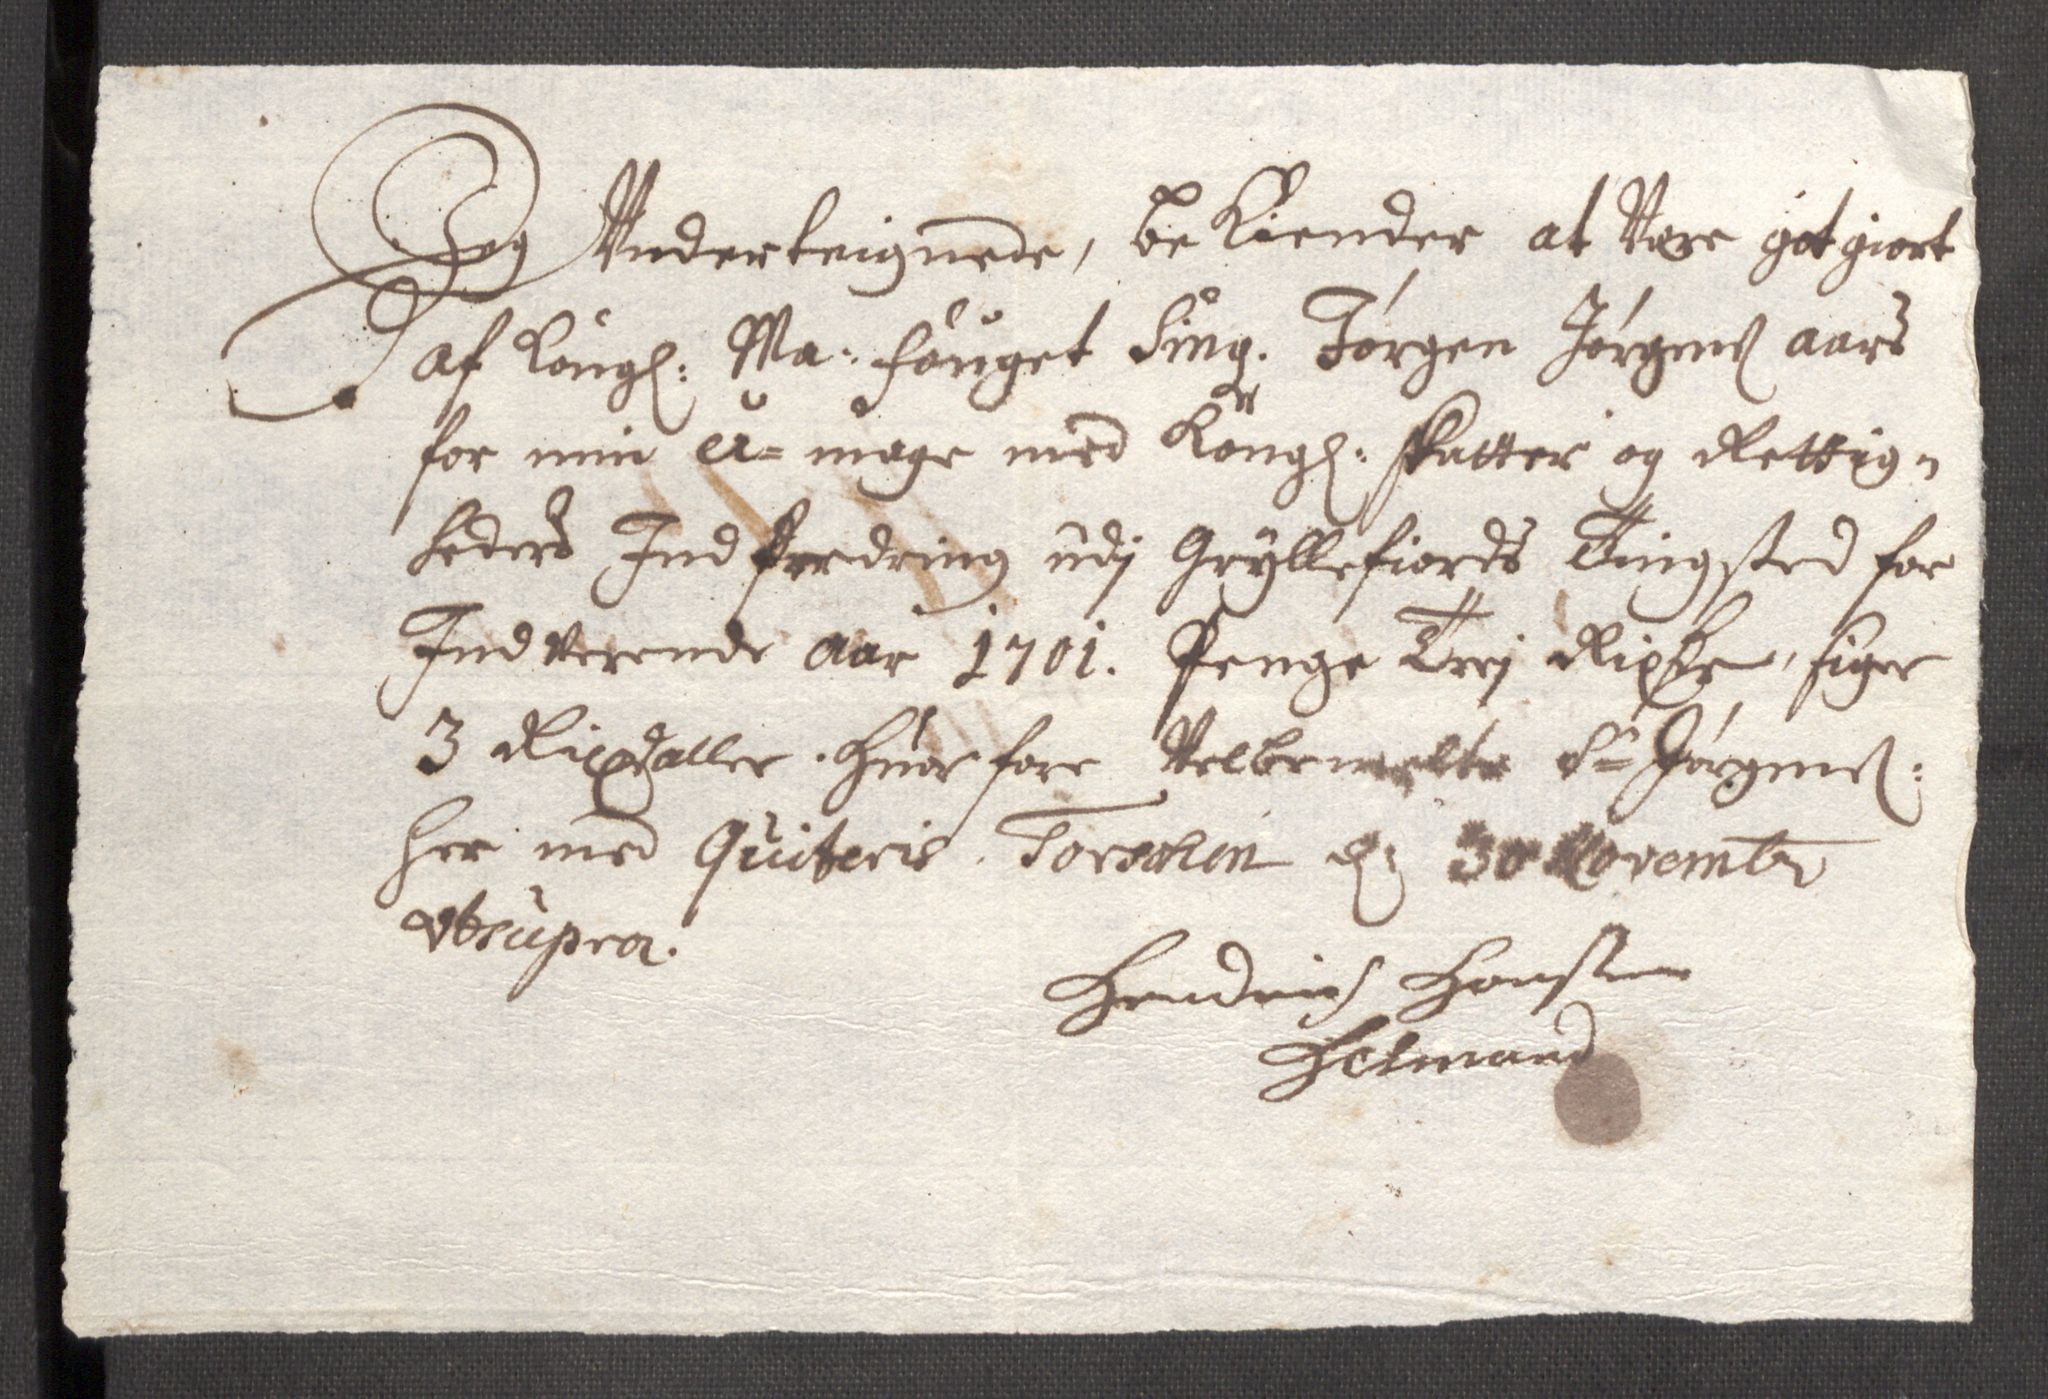 Jeg Underteignede, be Kiender at Vere got giort
af Kongl: Ma: fouget Sing. Jørgen Jørgens aars
for min U= mage med Kongl: skatter og Rettig=
heders Ind fordring udj Gryllefiords Tingsted for
Indverende aar 1701. Penge Trej Rixdlr, siger
3 Rixdaller. Huorfore Velbemelte Sr Jørgens:
her med Quiteris. Torschen d: 30 Novembr
Vtsupra.
Hendrich Hansen
Helmand